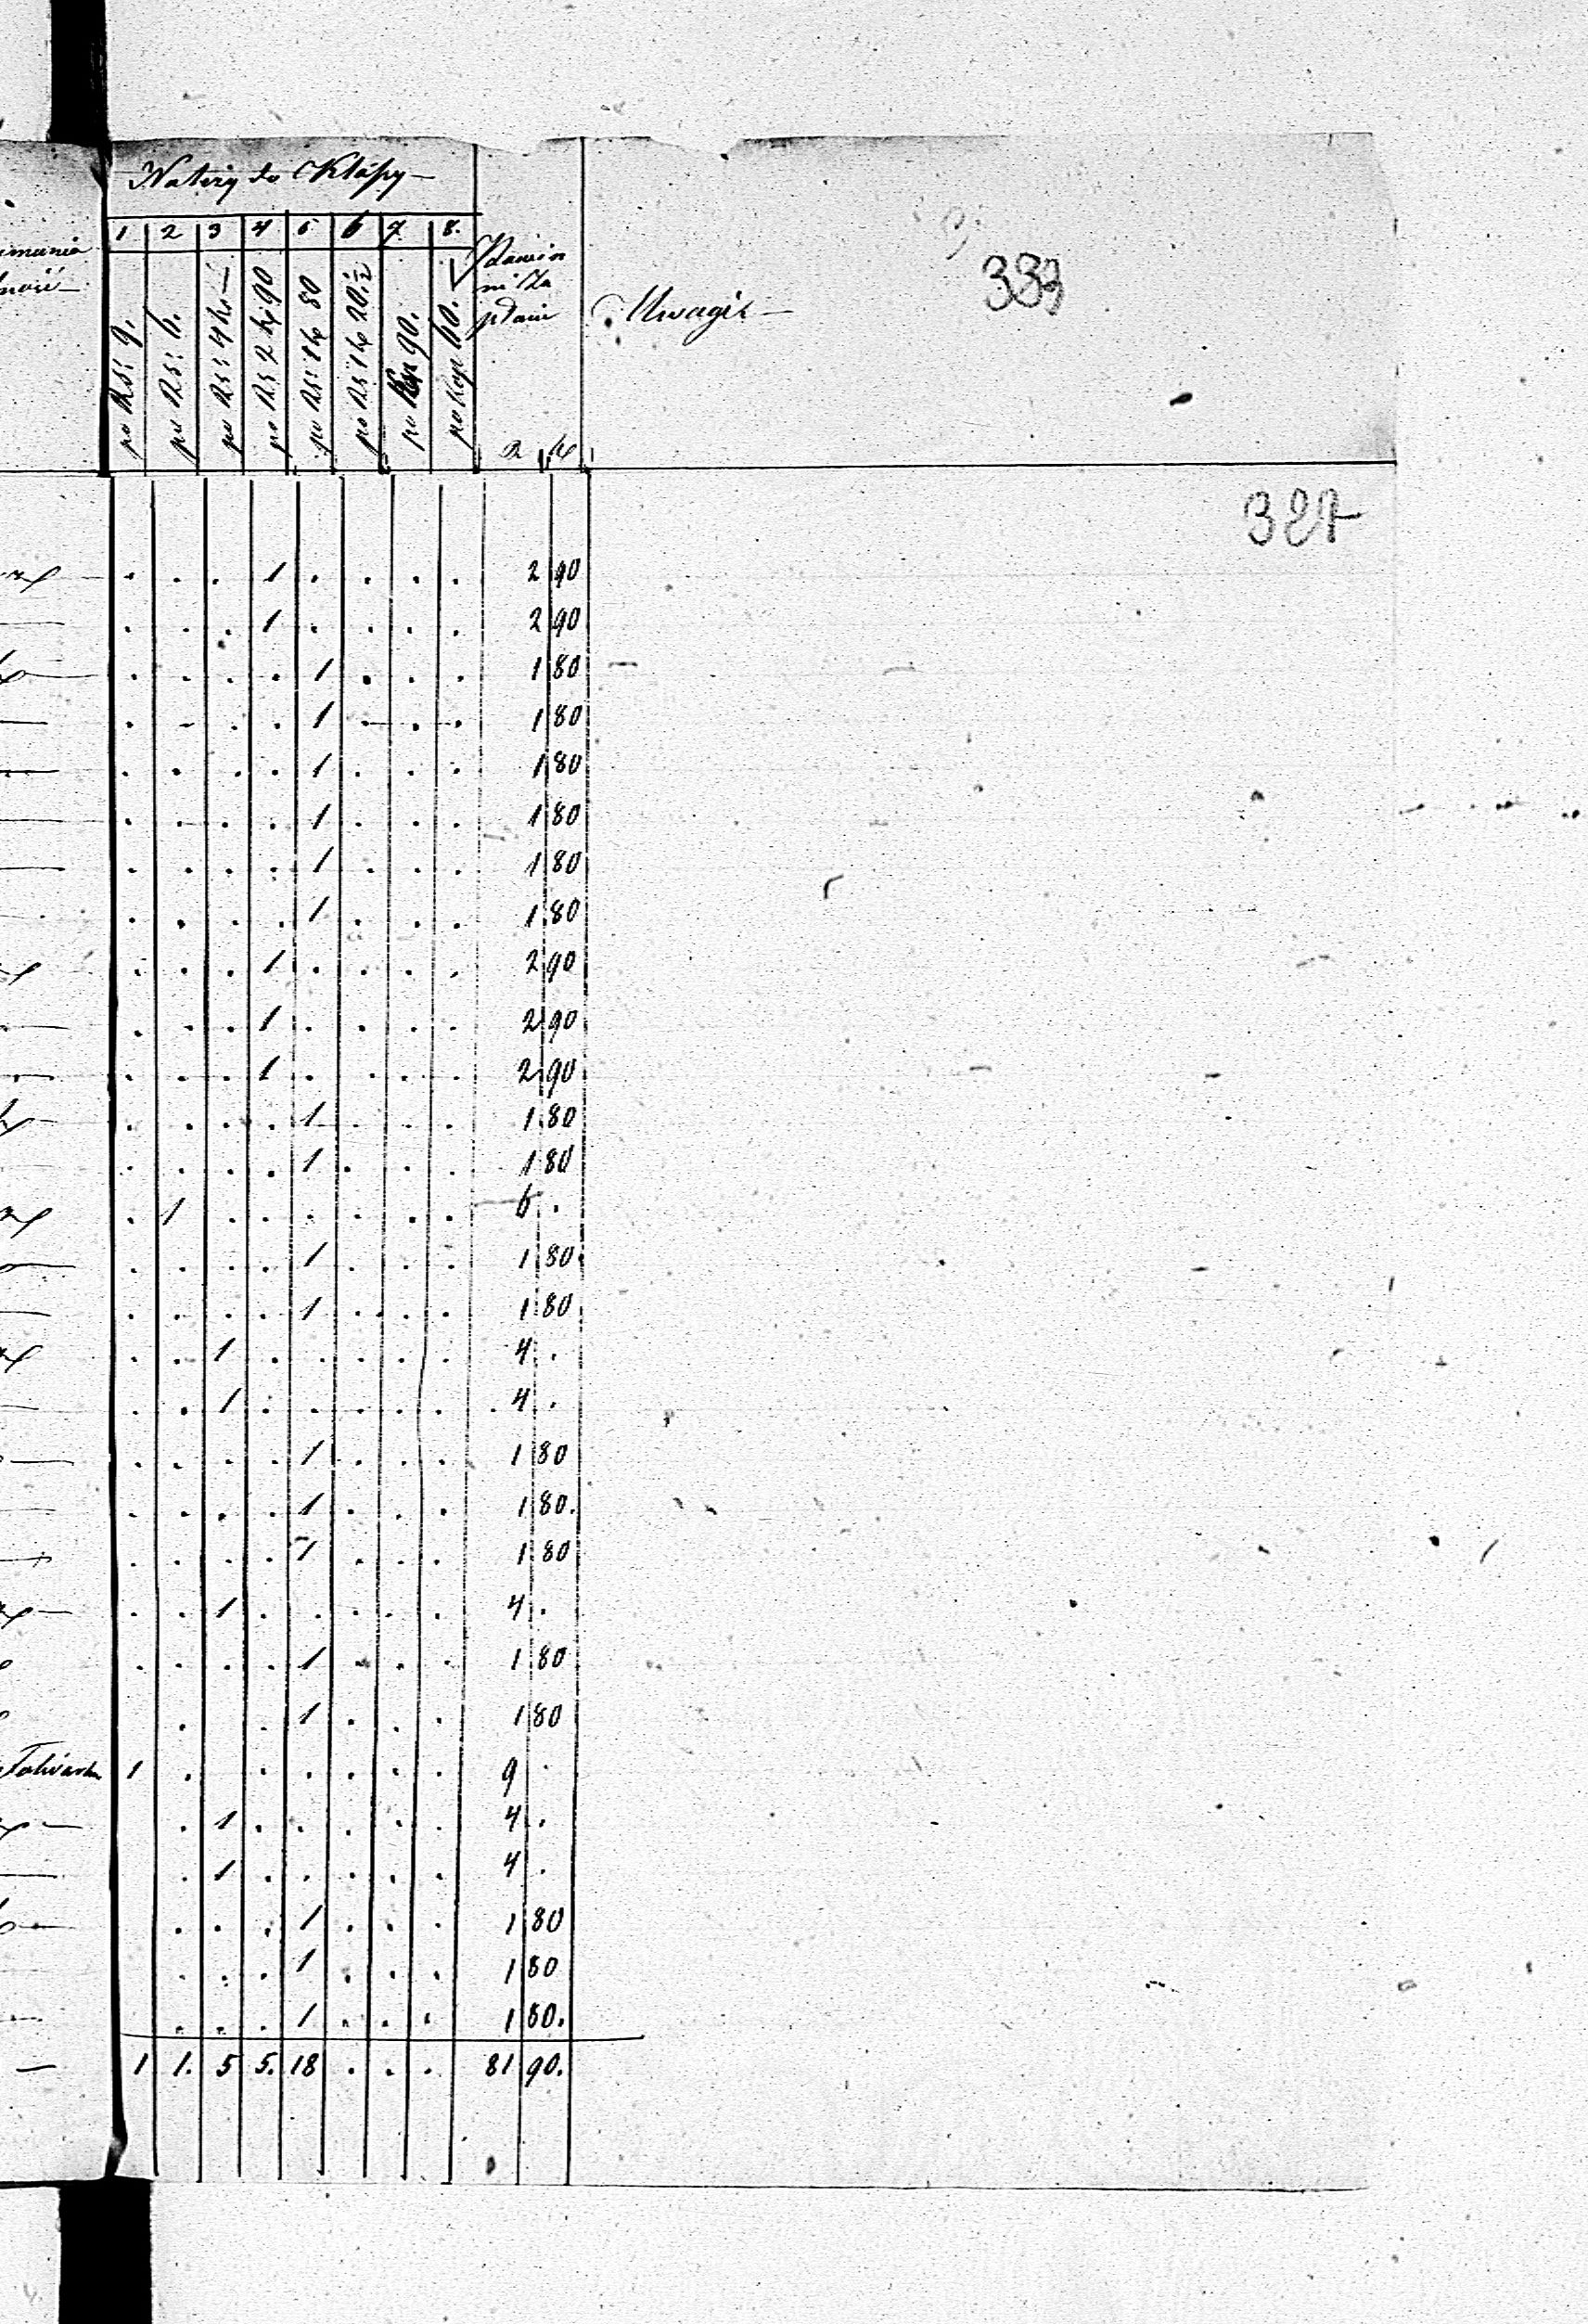 Należy do Klassy
1 2 3 4 5 6 7 8.
po RS: 9.
po RS: 6.
po RS: 4 k. —
po RS 2 k 90
po RS: 1 k 80
po RS 1 k 20 1/2
po Kop 90.
po Kop 60.
płacić
Uwagi —
R k
387
327
. . . 1 . . . . 2 90
. . . 1 . . . . 2 90
. . . . 1 . . . 1 80
. . . . 1 . . . 1 80
. . . . 1 . . . 1 80
. . . . 1 . . . 1 80
. . . . 1 . . . 1 80
. . . . 1 . . . 1 80
. . . 1 . . . . 2 90
. . . 1 . . . . 2 90
. . . 1 . . . . 2 90
. . . . 1 . . . 1 80
. . . . 1 . . . 1 80
. 1 . . . . . . 6 .
. . . . 1 . . . 1 80
. . . . 1 . . . 1 80
. . 1 . . . . . 4 .
. . 1 . . . . . 4 .
. . . . 1 . . . 1 80
. . . . 1 . . . 1 80.
. . . . 1 . . . 1 80
. . 1 . . . . . 4 .
. . . . 1 . . . 1 80
. . 1 . . . 1 80
1 . . . . . . 9 .
. 1 . . . . . 4 .
. 1 . . . . . 4 .
. . . 1 . . . 1 80
. . . 1 . . . 1 80
. . . 1 . . . 1 80.
— 1 1. 5 5. 18 . . . 81 90.